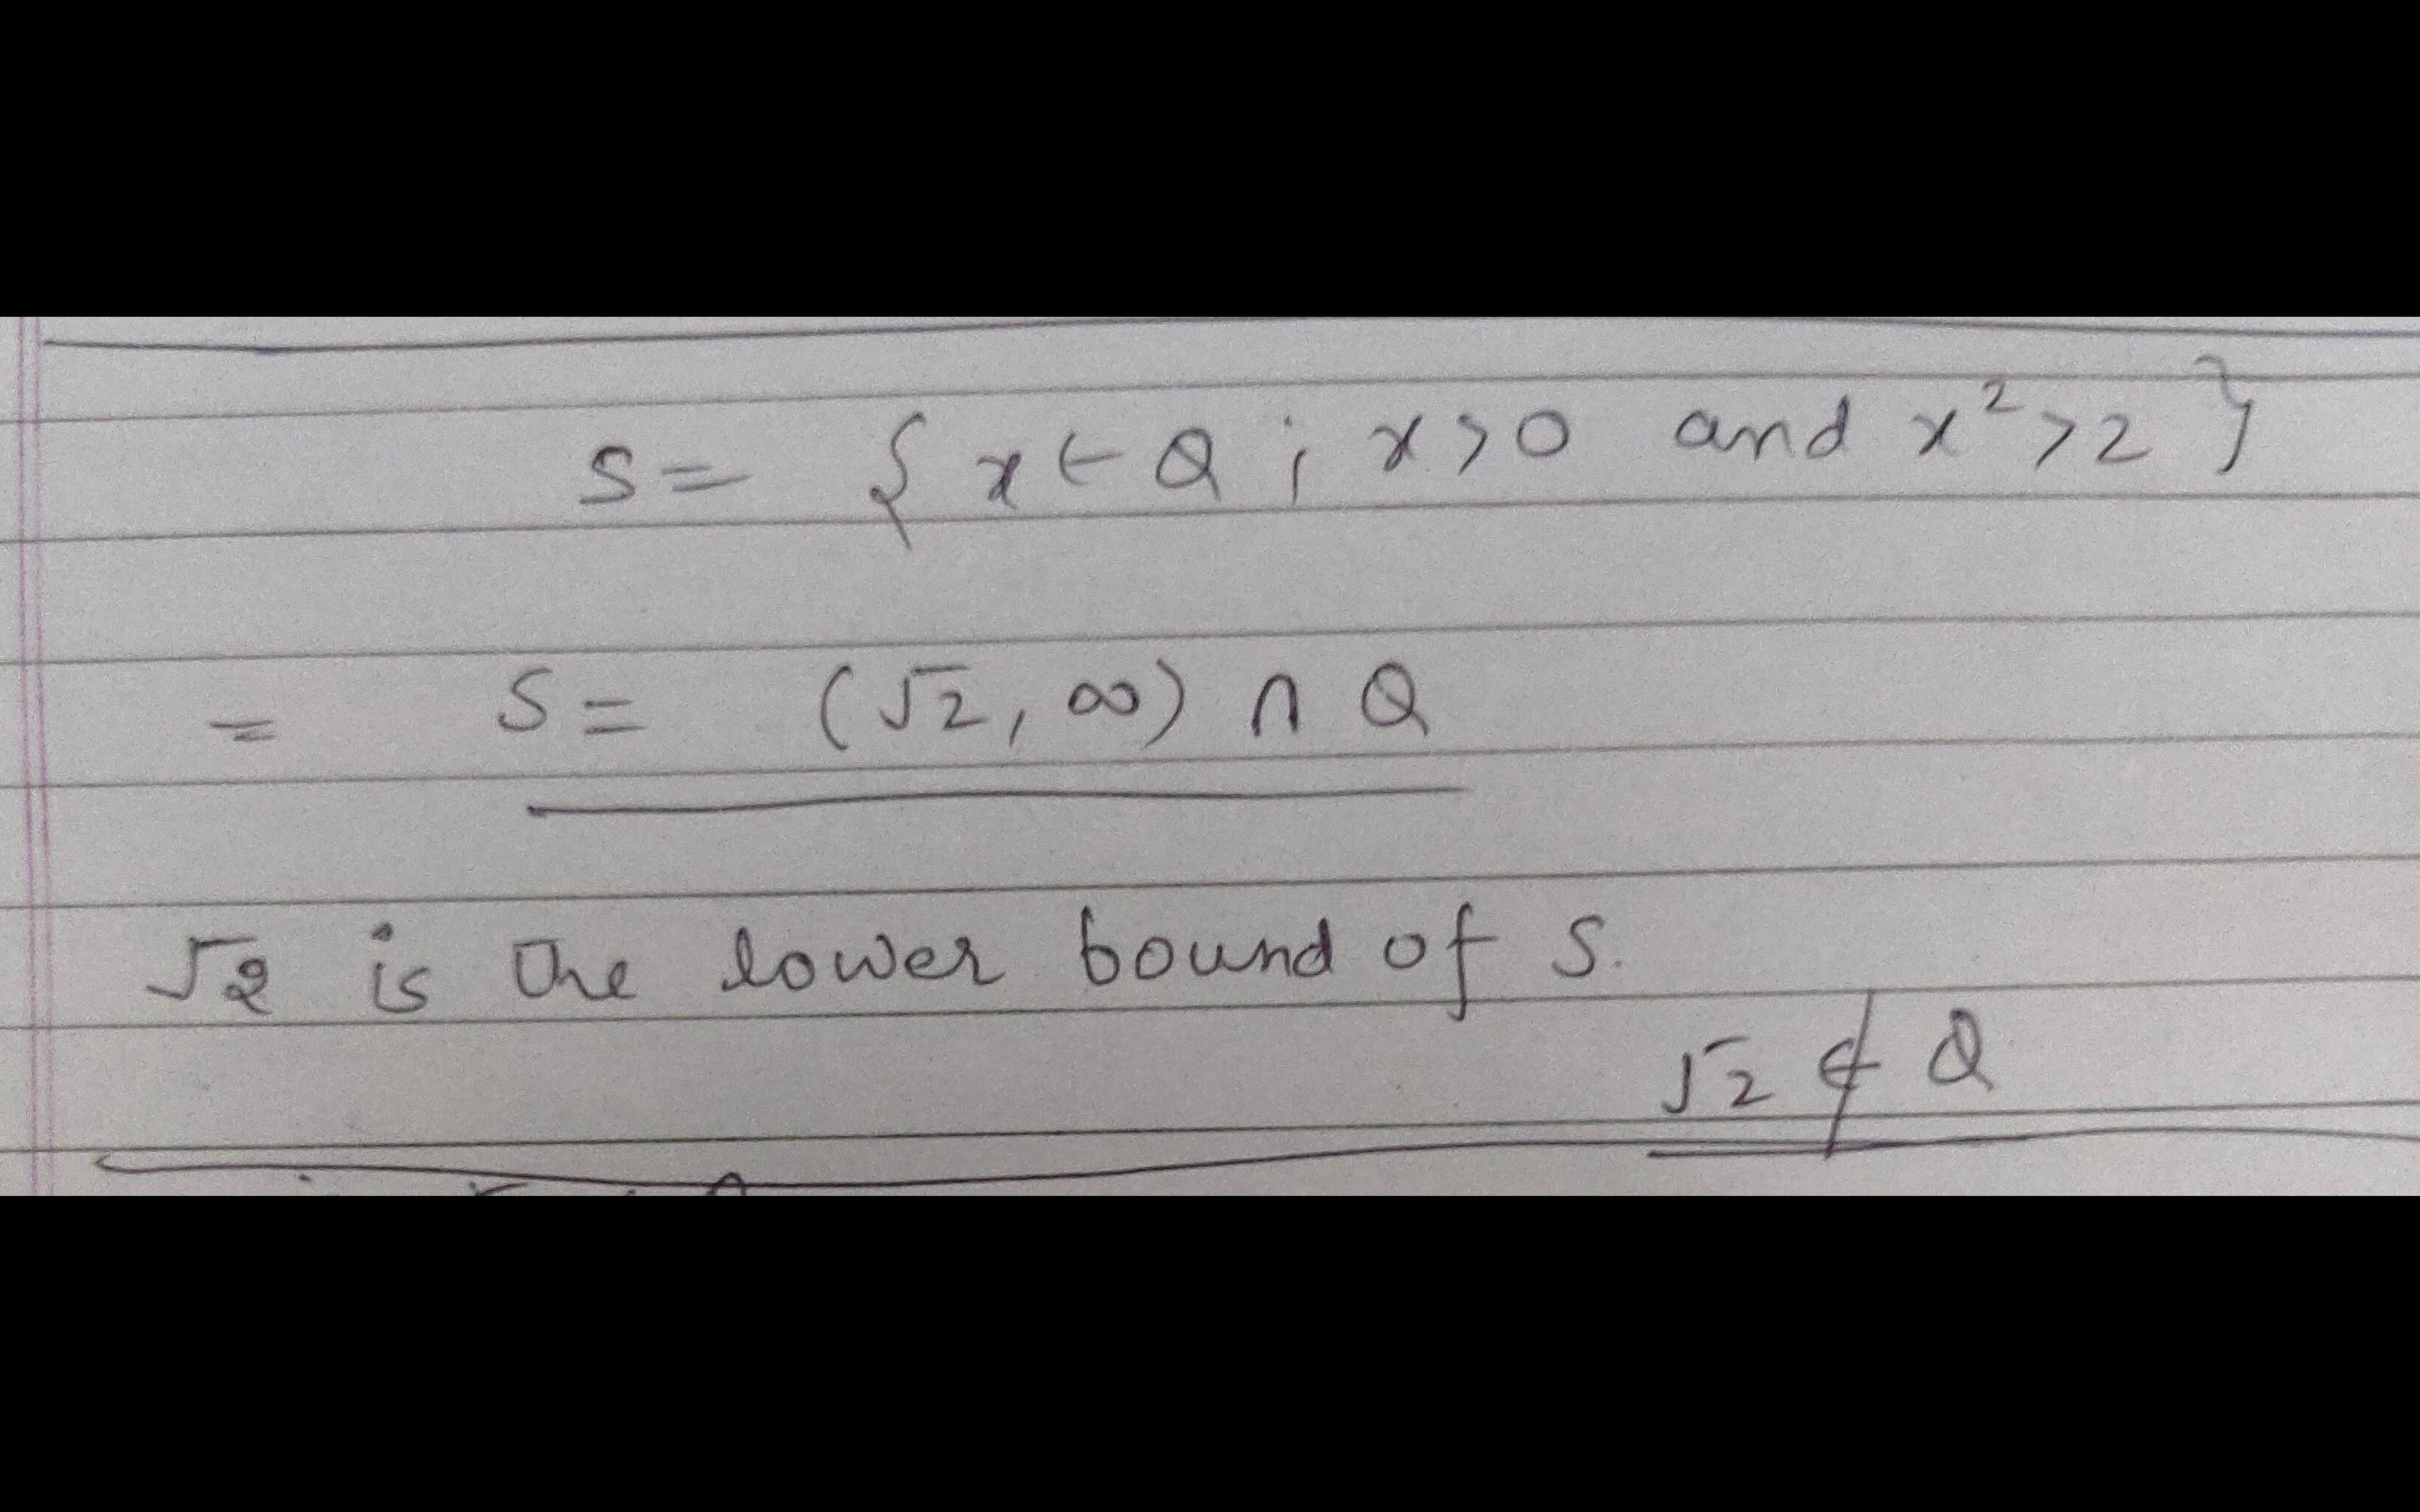 S = { x ∈ Q ; x > 0 and x² > 2 }
= S = (√2, ∞) ∩ Q
√2 is the lower bound of S.
√2 ∉ Q